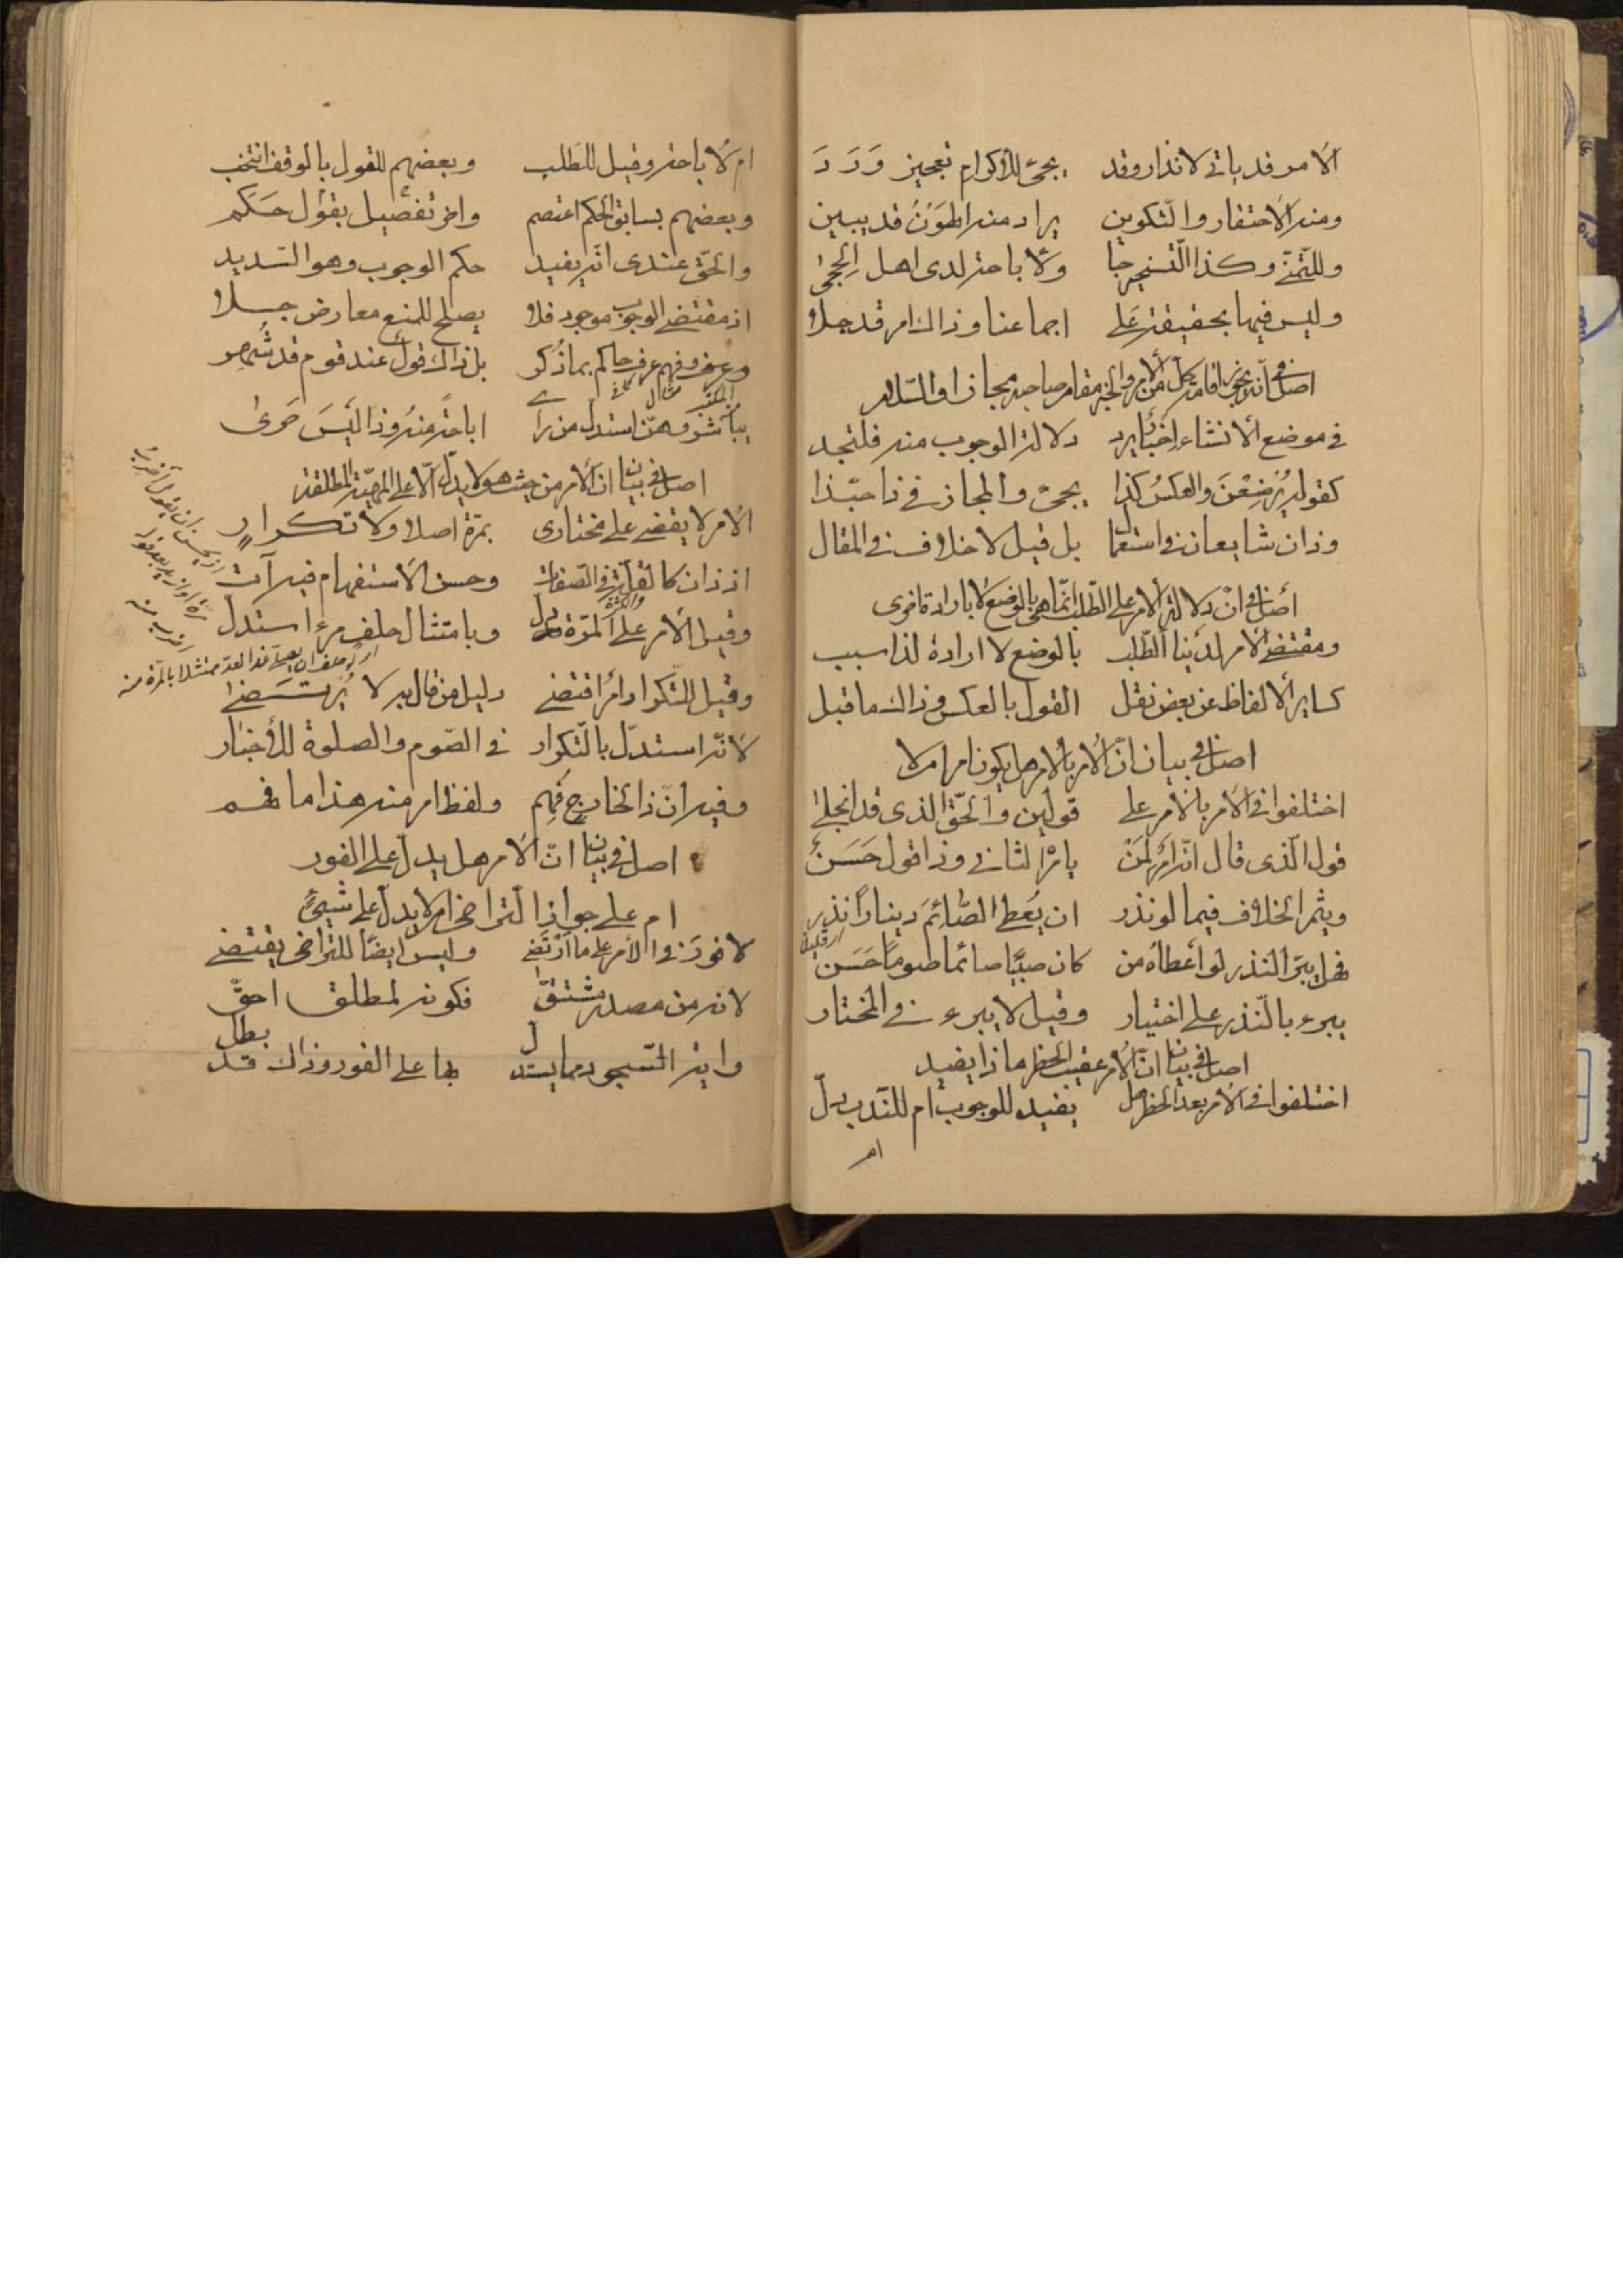 الامر قد ياتى لانذار وقد يجئ للاكرام تعجيز وَرَدَ
ومنه الاحتقار والتكوين يراد منه الهون قد يبين
وللتمنّي وكذا التسخير جا ولاباحة لدى اهل الحجى
وليس فيها بحقيقة على اجماعنا وذاك امر قد جلا
اصل فى انه يجوز اقامة كل من الامر والخبر مقام صاحبه مجازا والسّلام
فى موضع الانشاء إخبار يرد دلالة الوجوب منه فلتجد
كقوله يُرْضِعْنَ والعكسُ كذا يجئ والمجاز فى ذا حبّذا
وذان شايعان فى استعمال بل قيل لا خلاف فى المقال
أصل فى انْ دلالة الامر على الطلب انّما هى بالوضع لا بارادة اخرى
ومقتضى الامر لدينا الطّلب بالوضع لا ارادة لذا سبب
كساير الالفاظ عن بعض نقل القول بالعكس وذاك ما قبل
اصل فى بيان انّ الامر بالامر هل يكون امرا ام لا
اختلفوا فى الامر بالامر على قولين والحقّ الذى قد انجلى
قول الّذى قال انّه امر لمن يامر الثانى وذا قول حَسَن
ويثمر الخلاف فيما لو نذر ان يُعط الصّائِمَ دينارًا نذر
فهل يبرّ النذر لو أعطاه من كان صبيّا صائما صوما حَسَن
يبرء بالنّذر على اختيار وقيل لا يبرء فى المختار
اصل فى بيان انّ الامر عقيب الحظر ماذا يفيد
اختلفوا فى الامر بعد الحظر هل يفيد للوجوب ام للنّدب دلّ
ام
ام لاباحة وقيل للطلب وبعضهم للقول بالوقف انتخب
وبعضهم بسابق الحكم اعتصم واخر تفصيل بقول حَكَم
والحقّ عندى انّه يفيد حكم الوجوب وهو السّديد
اذ مقتضى الوجوب موجود فلا يصلح للمنع معارض جلا
وعرف فهم عرف حاكم بما ذُكر بل ذاك قول عند قوم قد شُهر
اباحةً منه وذا ليسَ حَرى
اصل فى بيان ان الامر من حيث هو لا يدلّ الّا على المهيّة المطلقة
الامر لا يقضى على مختارى بمرّة اصلا ولا تكرار
اذ ذان كالقلّة والكثرة فى الصّفات وحسن الاستفهام فيه آت
وقيل الامر على المرّة دلّ وبامتثال حلف مرء استدل
وقيل للتكرار دائرا اقتضى دليل من قال به لا يُرتَضى
لانّه استدلّ بالتكرار فى الصّوم والصلوة للأخبار
وفيه انّ ذا لخارج فُهِم ولفظ امر منه هذا ما فهم
اصل فى بيان انّ الامر هل يدلّ على الفور
ام على جواز التراخى ام لا يدلّ على شيئ
لا فورَ فى الامر على ما اُرْتضى وليس ايضًا للتراخى يقتضى
لانه من مصدر مشتقّ فكونه لمطلق احقّ
واية السّجود ما يستدل بها على الفور وذاك قد بطل